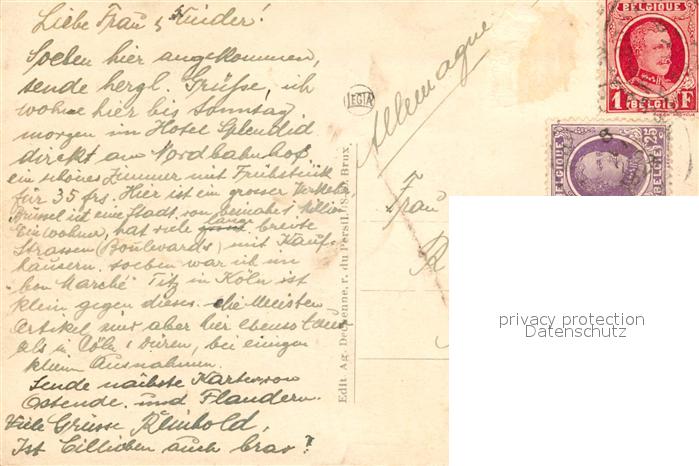 Liebe Frau & Kinder!
Soeben hier angekommen,
sende herzl. Grüße, ich
wohne hier bis Sonntag
morgen im Hotel Splendid
direkt am Nordbahnhof
ein schönes Zimmer mit Frühstück
für 35 frs. Hier ist ein grosser Verkehr
Brüssel ist eine Stadt von beinahe 1 Million
Einwohner, hat viele lange breite
Strassen (Boulevards) mit Kauf-
häusern. soeben war ich im
bon Marché Titz in Köln ist
klein gegen dieses. die meisten
Artikel sind aber hier ebenso teuer
als in Cöln & Düren, bei einigen
kleinen Ausnahmen.
Sende nächste Karten von
Ostende und Flandern.
Viele Grüsse Reinhold,
Ist Cillieben auch brav?
LEGIA
Edit. Ag. Decrenne, r. du Persil, Brux.
Allemagne
Frau
BELGIQUE
1 F
BELGIË
BELGIQUE
25
BELGIË
privacy protection
Datenschutz